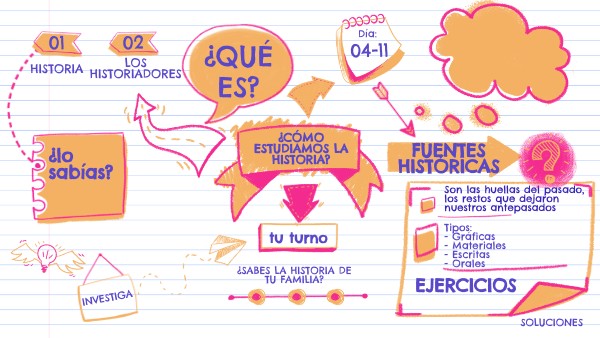 01
HISTORIA
02
LOS
HISTORIADORES
¿QUÉ
ES?
Dia:
04-11
¿lo
sabías?
¿CÓMO
ESTUDIAMOS LA
HISTORIA?
FUENTES
HISTÓRICAS
?
Son las huellas del pasado,
los restos que dejaron
nuestros antepasados
Tipos:
- Gráficas
- Materiales
- Escritas
- Orales
EJERCICIOS
tu turno
¿SABES LA HISTORIA DE
TU FAMILIA?
INVESTIGA
SOLUCIONES